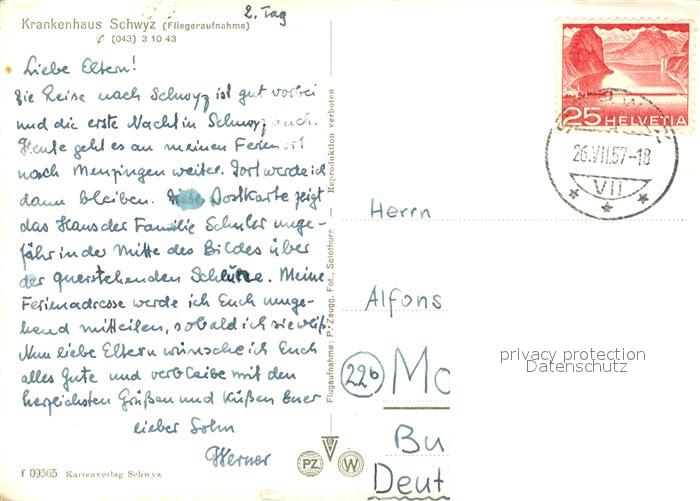 2. Tag
Krankenhaus Schwyz (Fliegeraufnahme)
✆ (043) 3 10 43
Liebe Eltern!
Die Reise nach Schwyz ist gut vorbei
und die erste Nacht in Schwyz auch.
Heute geht es an meinen Ferienort
nach Menzingen weiter. Dort werde ich
dann bleiben. Diese Postkarte zeigt
das Haus der Familie Schuler unge-
fähr in der Mitte des Bildes über
der querstehenden Scheune. Meine
Ferienadresse werde ich Euch umge-
hend mitteilen, sobald ich sie weiß.
Nun liebe Eltern wünsche ich Euch
alles Gute und verbleibe mit den
herzlichsten Grüßen und Küßen Euer
lieber Sohn
Werner
f 09565 Kartenverlag Schwyz
Flugaufnahme: P. Zaugg, Fot., Solothurn — Reproduktion verboten
PZ W
25 HELVETIA
26.VII.57-18
VII
Herrn
Alfons
22b Mo
Bu
Deut
privacy protection
Datenschutz